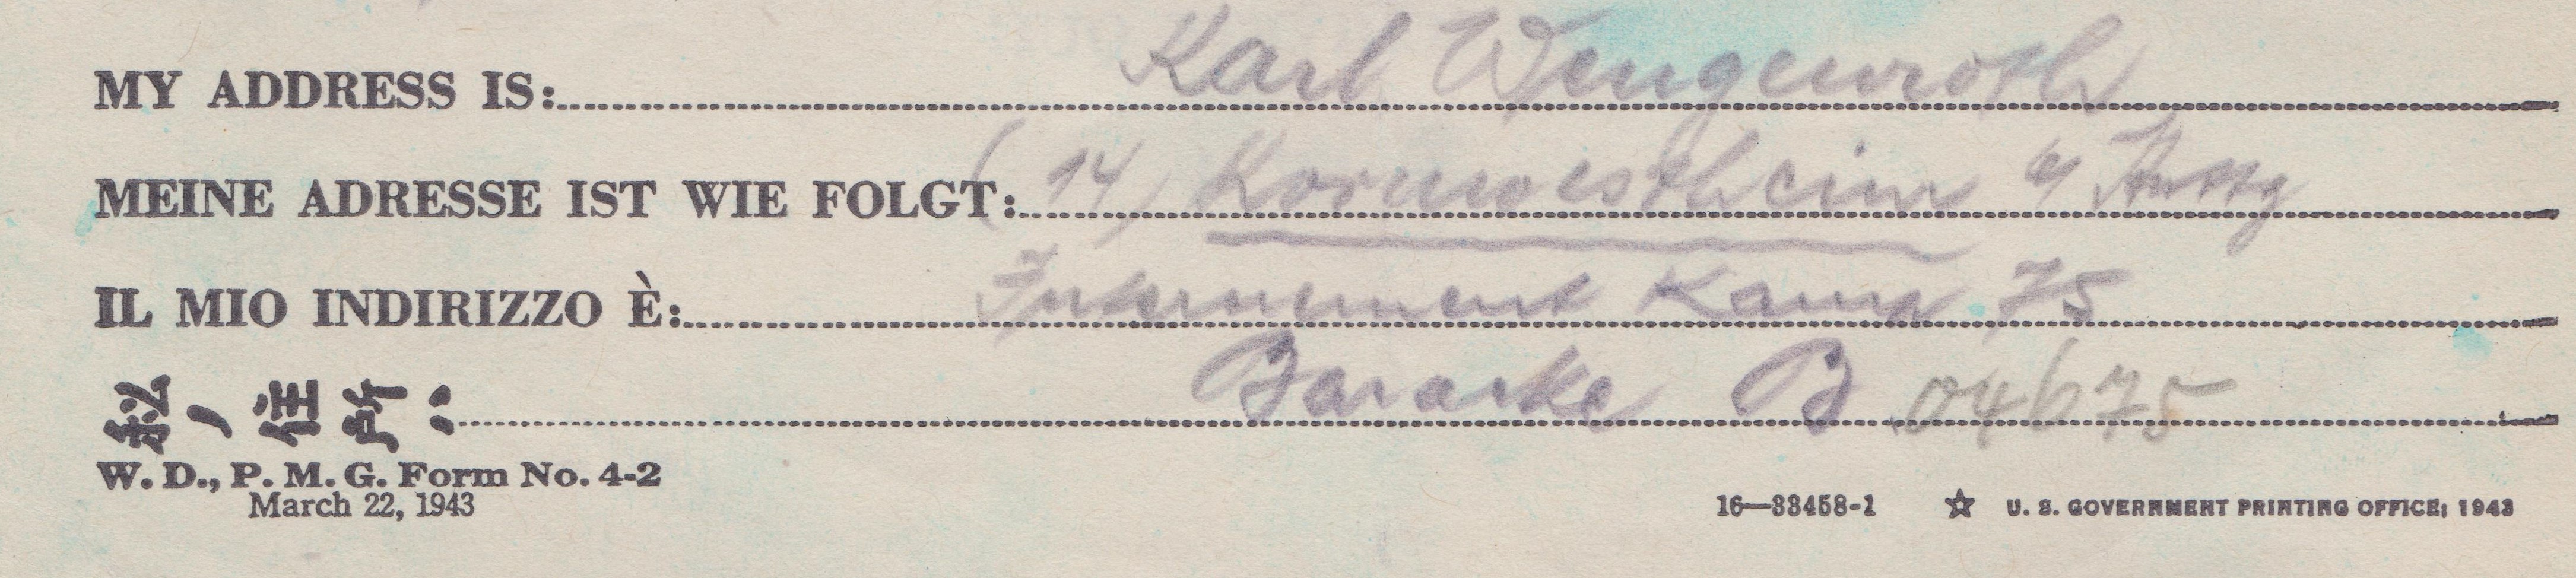 MY ADDRESS IS: Karl Wengenroth
MEINE ADRESSE IST WIE FOLGT: (14) Kornwestheim b/ Sttg
IL MIO INDIRIZZO È: Internement Kamp 75
私ノ住所: Baracke B 04675
W. D., P. M. G. Form No. 4-2
March 22, 1943
16—33458-1 ☆ U. S. GOVERNMENT PRINTING OFFICE; 1943